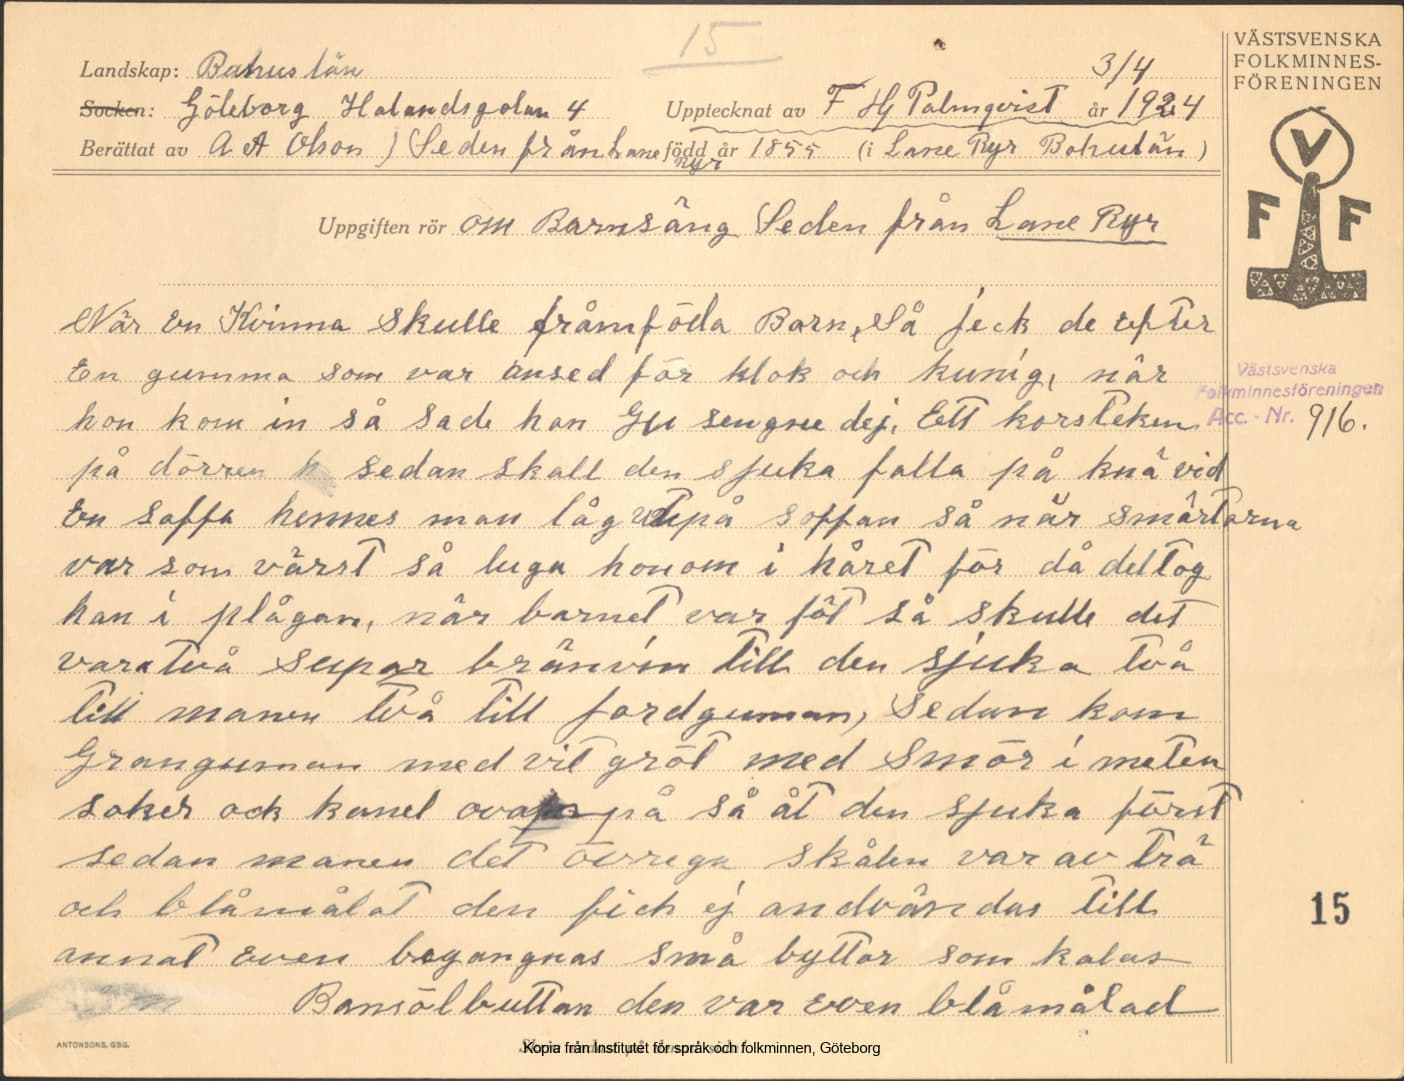 15
Landskap: Bahuslän 3/4
Socken: Göteborg Halandsgatan 4 Upptecknat av F Hj Palmqvist år 1924
Berättat av A A Olson ) (Seden från Lane Ryr född år 1855 (i Lane Ryr Bohulän )
Uppgiften rör om Barnsäng Seden från Lane Ryr
När en Kvinna skulle fråmföda Barn, så jeck de efter
En gumma som var ansed för klok och kunig, när
hon kom in så sade hon Gu sengne dej. Ett korsteken
på dörren sedan skall den sjuka falla på knä vid
En soffa hennes man låg på soffan så när smärtarna
var som värst så luga honom i håret för då deltog
han i plågan, när barnet var föt så skulle det
vara två supar bränvin till den sjuka två
till manen två till jordguman, Sedan kom
Granguman med vit gröt med Smör i meten
soker och kanel på så åt den sjuka först
sedan manen det övrega skålen var av trä
och blåmålat den fick ej andvändas till
annat Even begangnas små byttor som kalas
Bansölbuttan den var even blåmålad
ANTONSONS, GBG.
Kopia från Institutet för språk och folkminnen, Göteborg
VÄSTSVENSKA
FOLKMINNES-
FÖRENINGEN
V
F F
Västsvenska
Folkminnesföreningen
Acc. - Nr. 916.
15